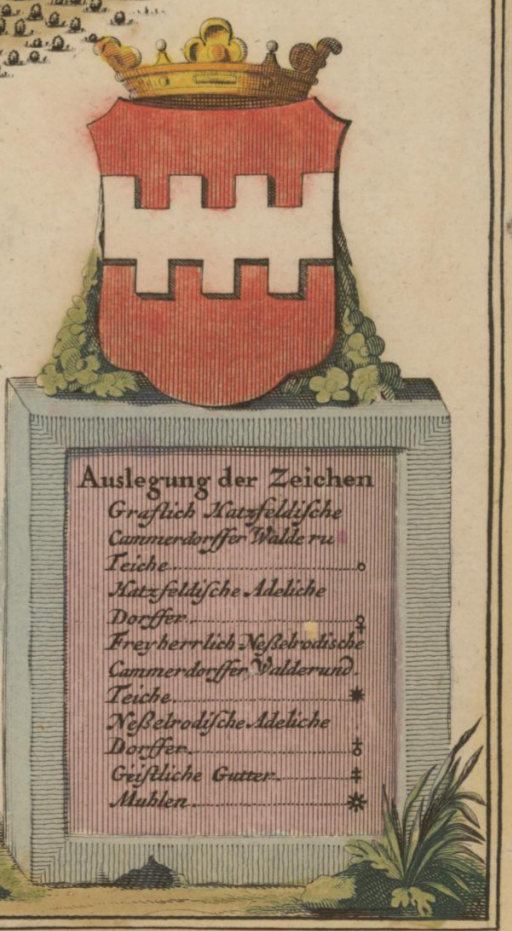 Auslegung der Zeichen
Graflich Hatzfeldische
Cammerdorffer Walde ru
Teiche
Hatzfeldische Adeliche
Dorffer
Freyherrlich Neßelrodische
Cammerdorffer Walderund.
Teiche
Neßelrodische Adeliche
Dorffer
Geistliche Gutter
Muhlen